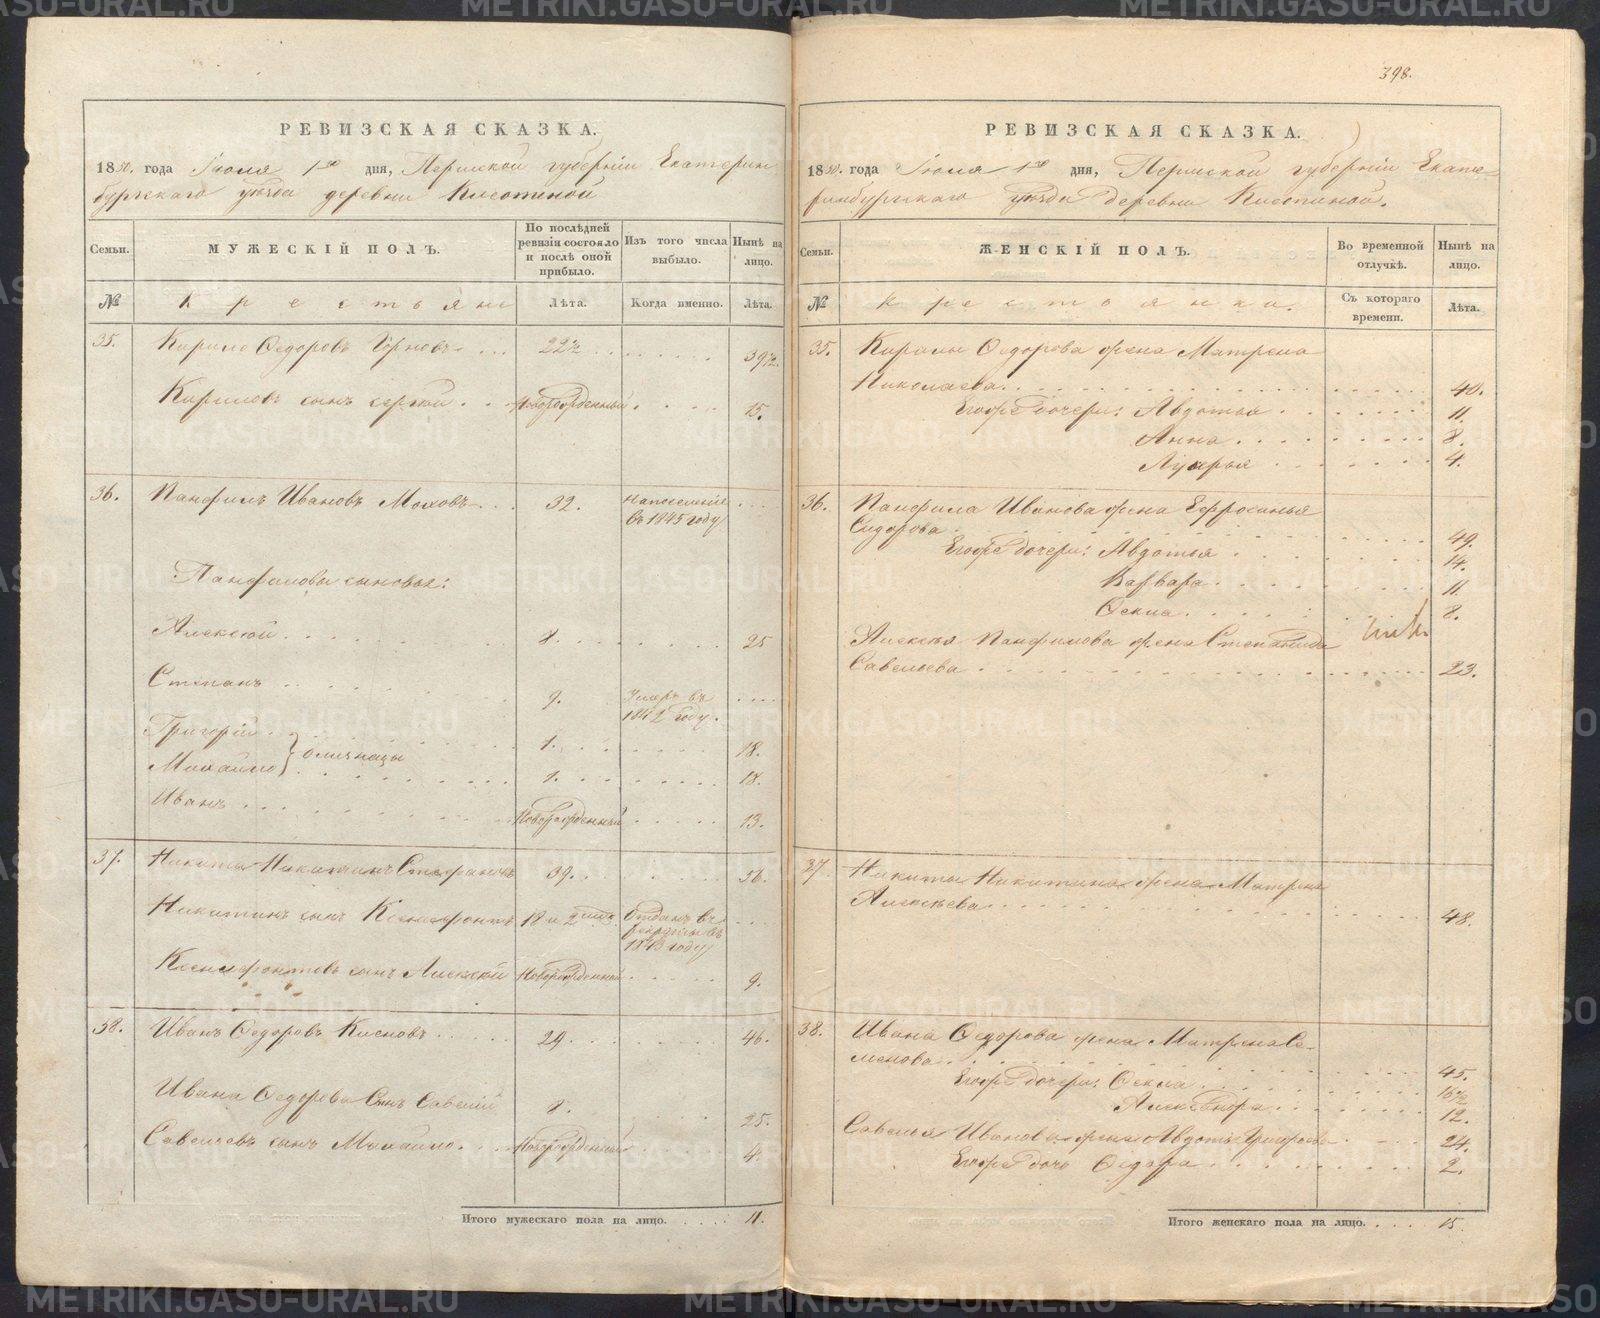 METRIKI.GASO-URAL.RU
398.
РЕВИЗСКАЯ СКАЗКА.
1850. года Іюля 1го дня, Пермской губерніи Екатерин
бургскаго уѣзда деревни
Семьи.
МУЖЕСКІЙ ПОЛЪ.
По послѣдней
ревизіи состояло
и послѣ оной
прибыло.
Изъ того числа
выбыло.
Нынѣ на
лицо.
№
Крестьяне
Лѣта.
Когда именно.
Лѣта.
35. Кирило Ѳедоровъ 22½ 39½.
Кириловъ сынъ Сергѣй Новорожденный 15.
36. Панфилъ Ивановъ Моховъ 32. На поселеніе
въ 1845 году
Панфиловы сыновья:
Алексѣй 8. 25
Степанъ 9. Умеръ въ
1842 году.
Григорій 1. 18.
близнецы
Михайло 1. 18.
Иванъ Новорожденный 13.
37. Никита Никитинъ 39. 56.
Никитинъ сынъ Ксенофонтъ 18 и Отданъ въ
рекруты въ
1843 году
Ксенофонтовъ сынъ Алексѣй Новорожденный 9.
38. Иванъ Ѳедоровъ 29. 46.
Ивана Ѳедорова сынъ Савелій 8. 25.
Савельевъ сынъ Михайло Новорожденный 4.
Итого мужескаго пола на лицо. 11.
РЕВИЗСКАЯ СКАЗКА.
1850. года Іюля 1го дня, Пермской губерніи Екате-
ринбургскаго уѣзда деревни
Семьи.
ЖЕНСКІЙ ПОЛЪ.
Во временной
отлучкѣ.
Нынѣ на
лицо.
№
Крестьянки.
Съ котораго
времени.
Лѣта.
35. Кирилы Ѳедорова жена Матрена
Николаева 40.
Егоже дочери: Авдотья 11.
Анна 8.
Лукерья 4.
36. Панфила Иванова жена Ефросинья
Сидорова 49.
Егоже дочери: Авдотья 14.
Варвара 11.
Ѳекла 8.
Алексѣя Панфилова жена Степанида
Савельева 23.
37. Никиты Никитина жена Матрена
Алексѣева 48.
38. Ивана Ѳедорова жена Матрена Се-
менова 45.
Егоже дочери: Ѳекла 16½
Александра 12.
Савелья Иванова жена Авдотья Григорьева 24.
Егоже дочь Ѳедора 2.
Итого женскаго пола на лицо. 15.